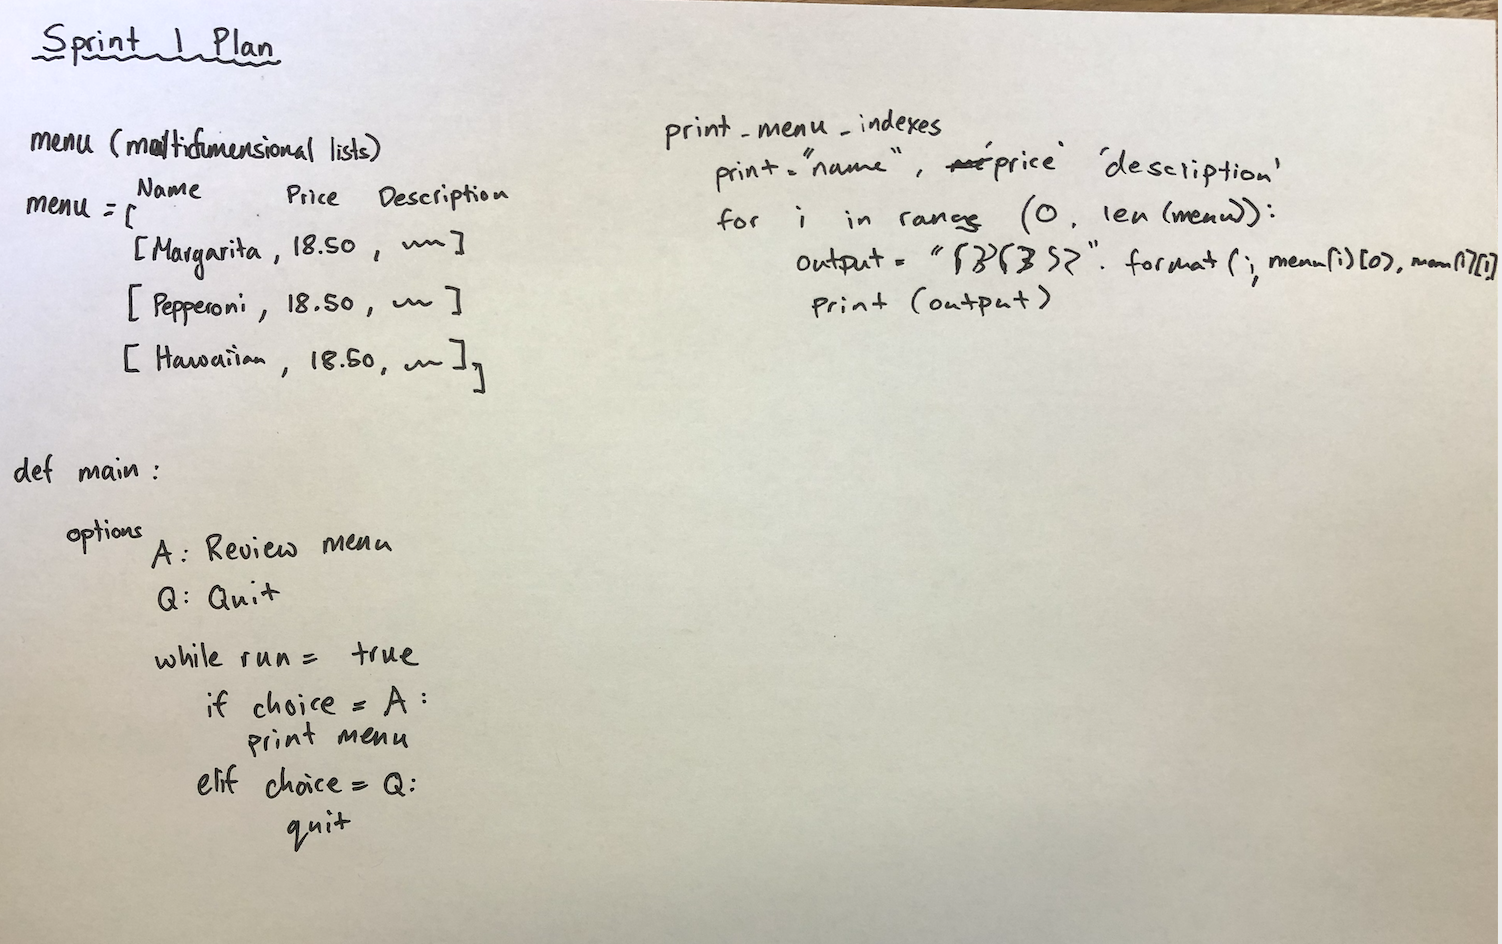 Sprint 1 Plan
menu (multidimensional lists)
Name Price Description
menu = [
[Margarita, 18.50, ]
[Pepperoni, 18.50, ]
[Hawaiian, 18.50, ]]
def main:
options
A: Review menu
Q: Quit
while run = true
if choice = A:
print menu
elif choice = Q:
quit
print_menu_indexes
print = "name", 'price' 'description'
for i in range (0, len (menu)):
output = "{}{}{}". format (i, menu[i][0], menu[i][1]
print (output)